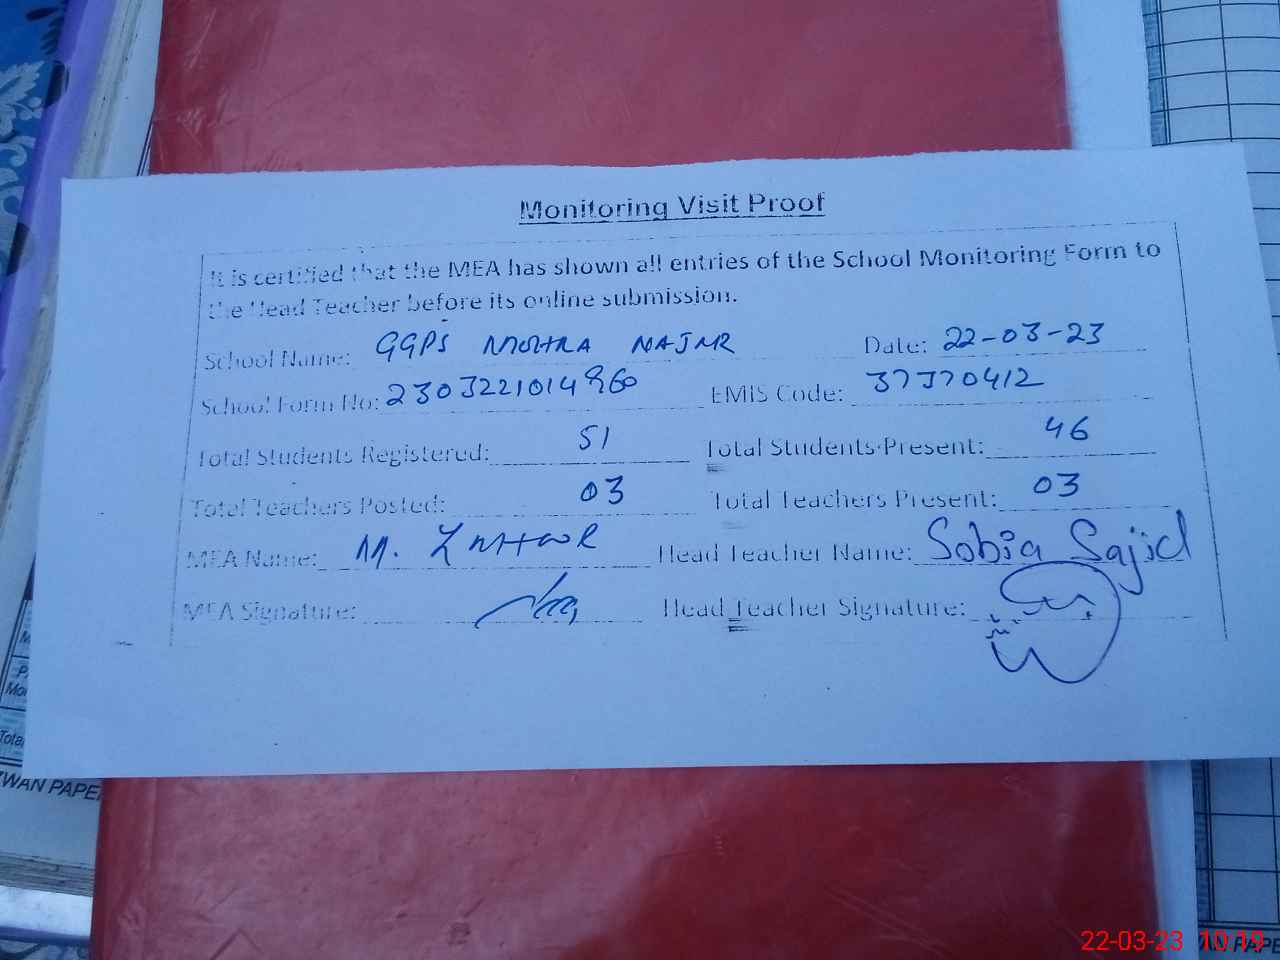 Monitoring Visit Proof
It is certified that the MEA has shown all entries of the School Monitoring Form to
the Head Teacher before its online submission.
School Name: GGPS MOHRA NAJMR Date: 22-03-23
School Form No: 230322101496 EMIS Code: 37370412
Total Students Registered: 51 Total Students Present: 46
Total Teachers Posted: 03 Total Teachers Present: 03
MEA Name: M. Head Teacher Name: Sobia Sajid
MEA Signature: Head Teacher Signature:
Total
WAN PAPE
22-03-23 10:19
WAN PAPE